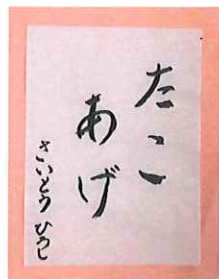 たこ
あげ
さいとうひろし